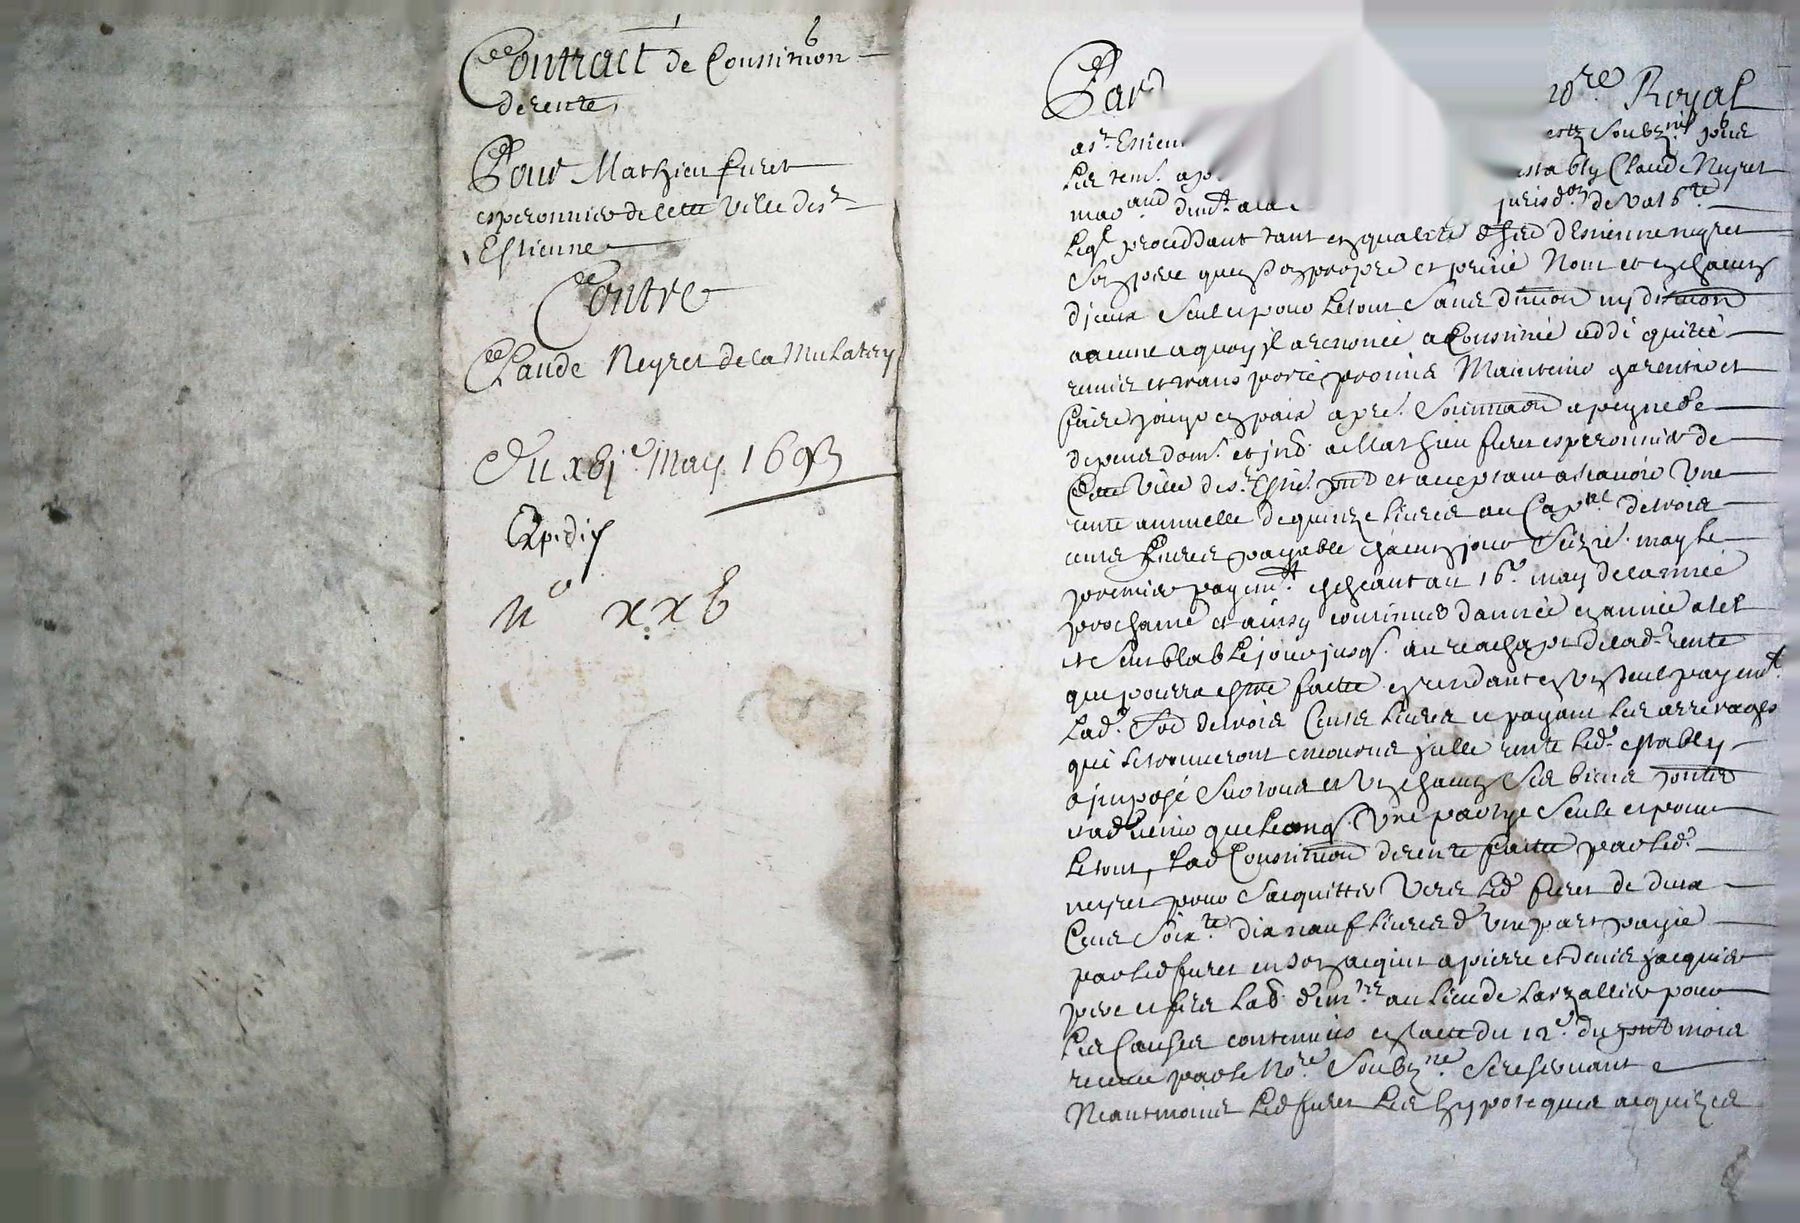 Contract de Constitution
de rente
Pour Mathieu furet
esperonnier de cette ville de st
Estienne
Contre
Claude Neyret de la Mulatery
Du xbje May 1693
Expedié
n° xxb
Par Royal
a st Estien soubzné
les tesm. establÿ Claude Neyret
jurisdon de
leql procedant tant en qualité d'her d'Estienne neyret
son pere quen son propre et privé Nom et en chacun
d'jceux seul et pour le tout sans division ny
aucune a quoy jl a renoncé a Constitué ceddé quitté
remis et transporté promis Maintenir garentir et
faire jouyr en paix apres a peyne de
depens dom. et jnts a Mathieu furet esperonnier de
Cette ville de st Estne pnt et acceptant a scavoir Une
rente annuelle de quinze livres au Capnl de trois
cens livres payable chacun jour seize may le
premier payemt escheant au 16e may de l'année
prochaine et ainsy continuer d'année en année a tel
et semblable jour jusq. au reachapt de lad. rente
que pourra estre faitte en rendant en un seul payemt
lad. de trois Cens livres et payant les arrerages
qui se trouveront jcelle rente led. estably
a jmposé sur tous et Un chacun ses biens
Une partye seule et pour
le tout, lad Constitution de rente faitte par led.
neyret pour s'acquitter Vers led furet de deux
Cens soixte dix nauf livres d'Une part payée
par led furet en son acquit a pierre et denis jacquier
pere et fils lad. au lieu de pour
les Causes contenues en l'acte du 12e du pnt mois
receu par le Nore soubzné se reservant
Neantmoins led furet les hypotecques acquizes